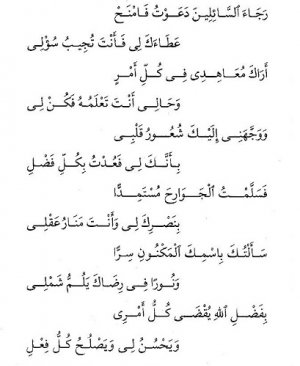 رَجَاءَ ٱلسَّائِلِينَ دَعَوْتُ فَامْنَحْ
عَطَاءَكَ لِى فَأَنْتَ تُجِيبُ سُؤْلِى
أَرَاكَ مُعَاهِدِى فِى كُلِّ أَمْرٍ
وَحَالِى أَنْتَ تَعْلَمُهُ فَكُنْ لِى
وَوَجَّهَنِى إِلَيْكَ شُعُورُ قَلْبِى
بِأَنَّكَ لِى فَعُدْتُ بِكُلِّ فَضْلِ
فَسَلَّمْتُ ٱلْجَوَارِحَ مُسْتَمِدًّا
بِنَصْرِكَ لِى وَأَنْتَ مَنَارُ عَقْلِى
سَأَلْتُكَ بِاسْمِكَ ٱلْمَكْنُونِ سِرًّا
وَنُورًا فِى رِضَاكَ يَلُمُّ شَمْلِى
بِفَضْلِ ٱللهِ يُقْضَى كُلُّ أَمْرِى
وَيَحْسُنُ لِى وَيَصْلُحُ كُلُّ فِعْلِ